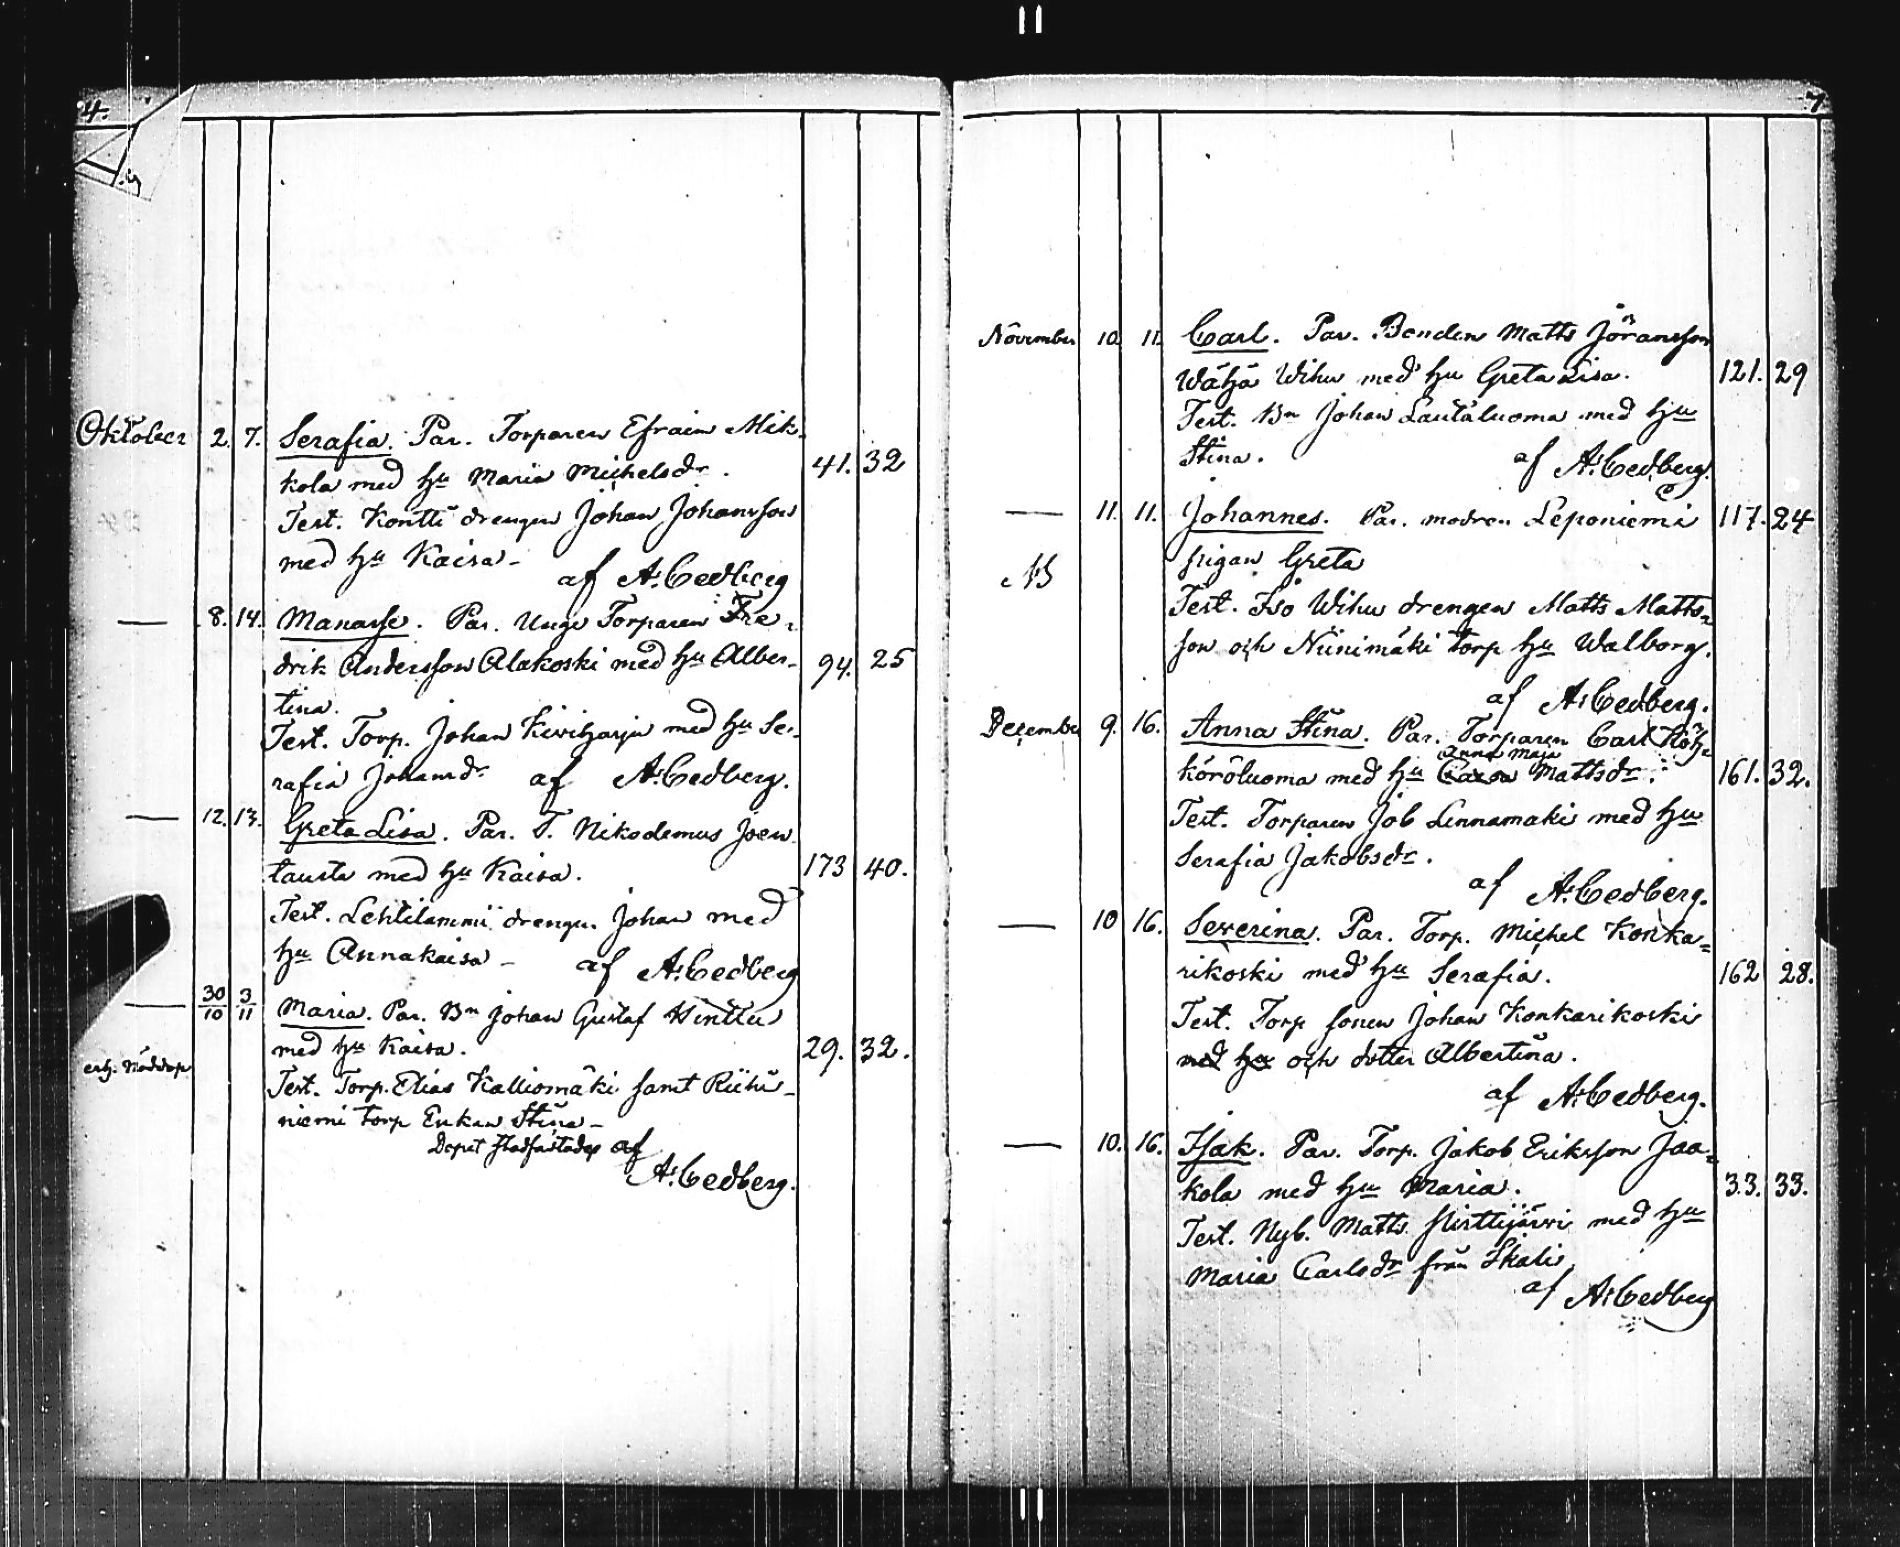 4.
Oktober 2. 7. Serafia. Par. Torparen Efraim Mik-
kola med hu Maria Michelsdr. 41. 32
Test. Kontti drengen Johan Johansson
med hu Kaisa -
af A. Cedberg
— 8. 14. Manasse. Par. Unge Torparen Fre-
drik Andersson Alakoski med hu Alber- 94. 25
tina.
Test. Torp. Johan Kiviharju med hu Se-
rafia Johansdr af A. Cedberg.
— 12. 13. Greta Lisa. Par. T. Nikodemus Joen
tausta med hu Kaisa. 173 40.
Test. Lehtilammi drengen Johan med
hu Annakaisa -
af A. Cedberg
— 30/10 3/11 Maria. Par. Bn Johan Gustaf Hinttu
med hu Kaisa. 29. 32.
erh. Nöddop
Test. Torp. Elias Kalliomäki samt Riihi-
niemi torp Enkan Stina -
Dopet stadfästades af
A. Cedberg.
7
November 10. 11. Carl. Par. Bonden Matts Jöransson
Wähä Wihu med hu Greta Lisa. 121. 29
Test. Bn Johan Lautaluoma med hu
Stina.
af A. Cedberg.
— 11. 11. Johannes. Par. modren Leponiemi 117. 24
NB pigan Greta
Test. Iso Wihu drengen Matts Matts-
son och Niinimäki torp hu Walborg.
af A. Cedberg.
December 9. 16. Anna Stina. Par. Torparen Carl
Anna Maja
köröluoma med hu Caisa Mattsdr. 161. 32.
Test. Torparen Job Linnamäki med hu
Serafia Jakobsdr.
af A. Cedberg.
— 10 16. Severina. Par. Torp. Michel Konka-
rikoski med hu Serafia. 162 28.
Test. Torp sonen Johan Konkarikoski
med hu och dotter Albertina.
af A. Cedberg.
— 10. 16. Isak. Par. Torp. Jakob Eriksson Jaa-
kola med hu Maria. 33. 33.
Test. Nyb. Matts Nisttijärvi med hu
Maria Carlsdr från Skali
af A. Cedberg